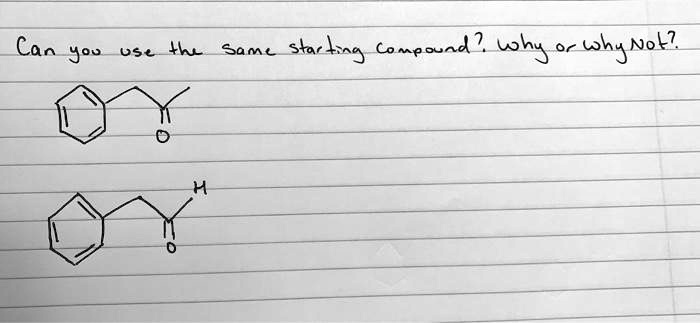 Can you use the same starting compound? Why or why Not?
O
H
O